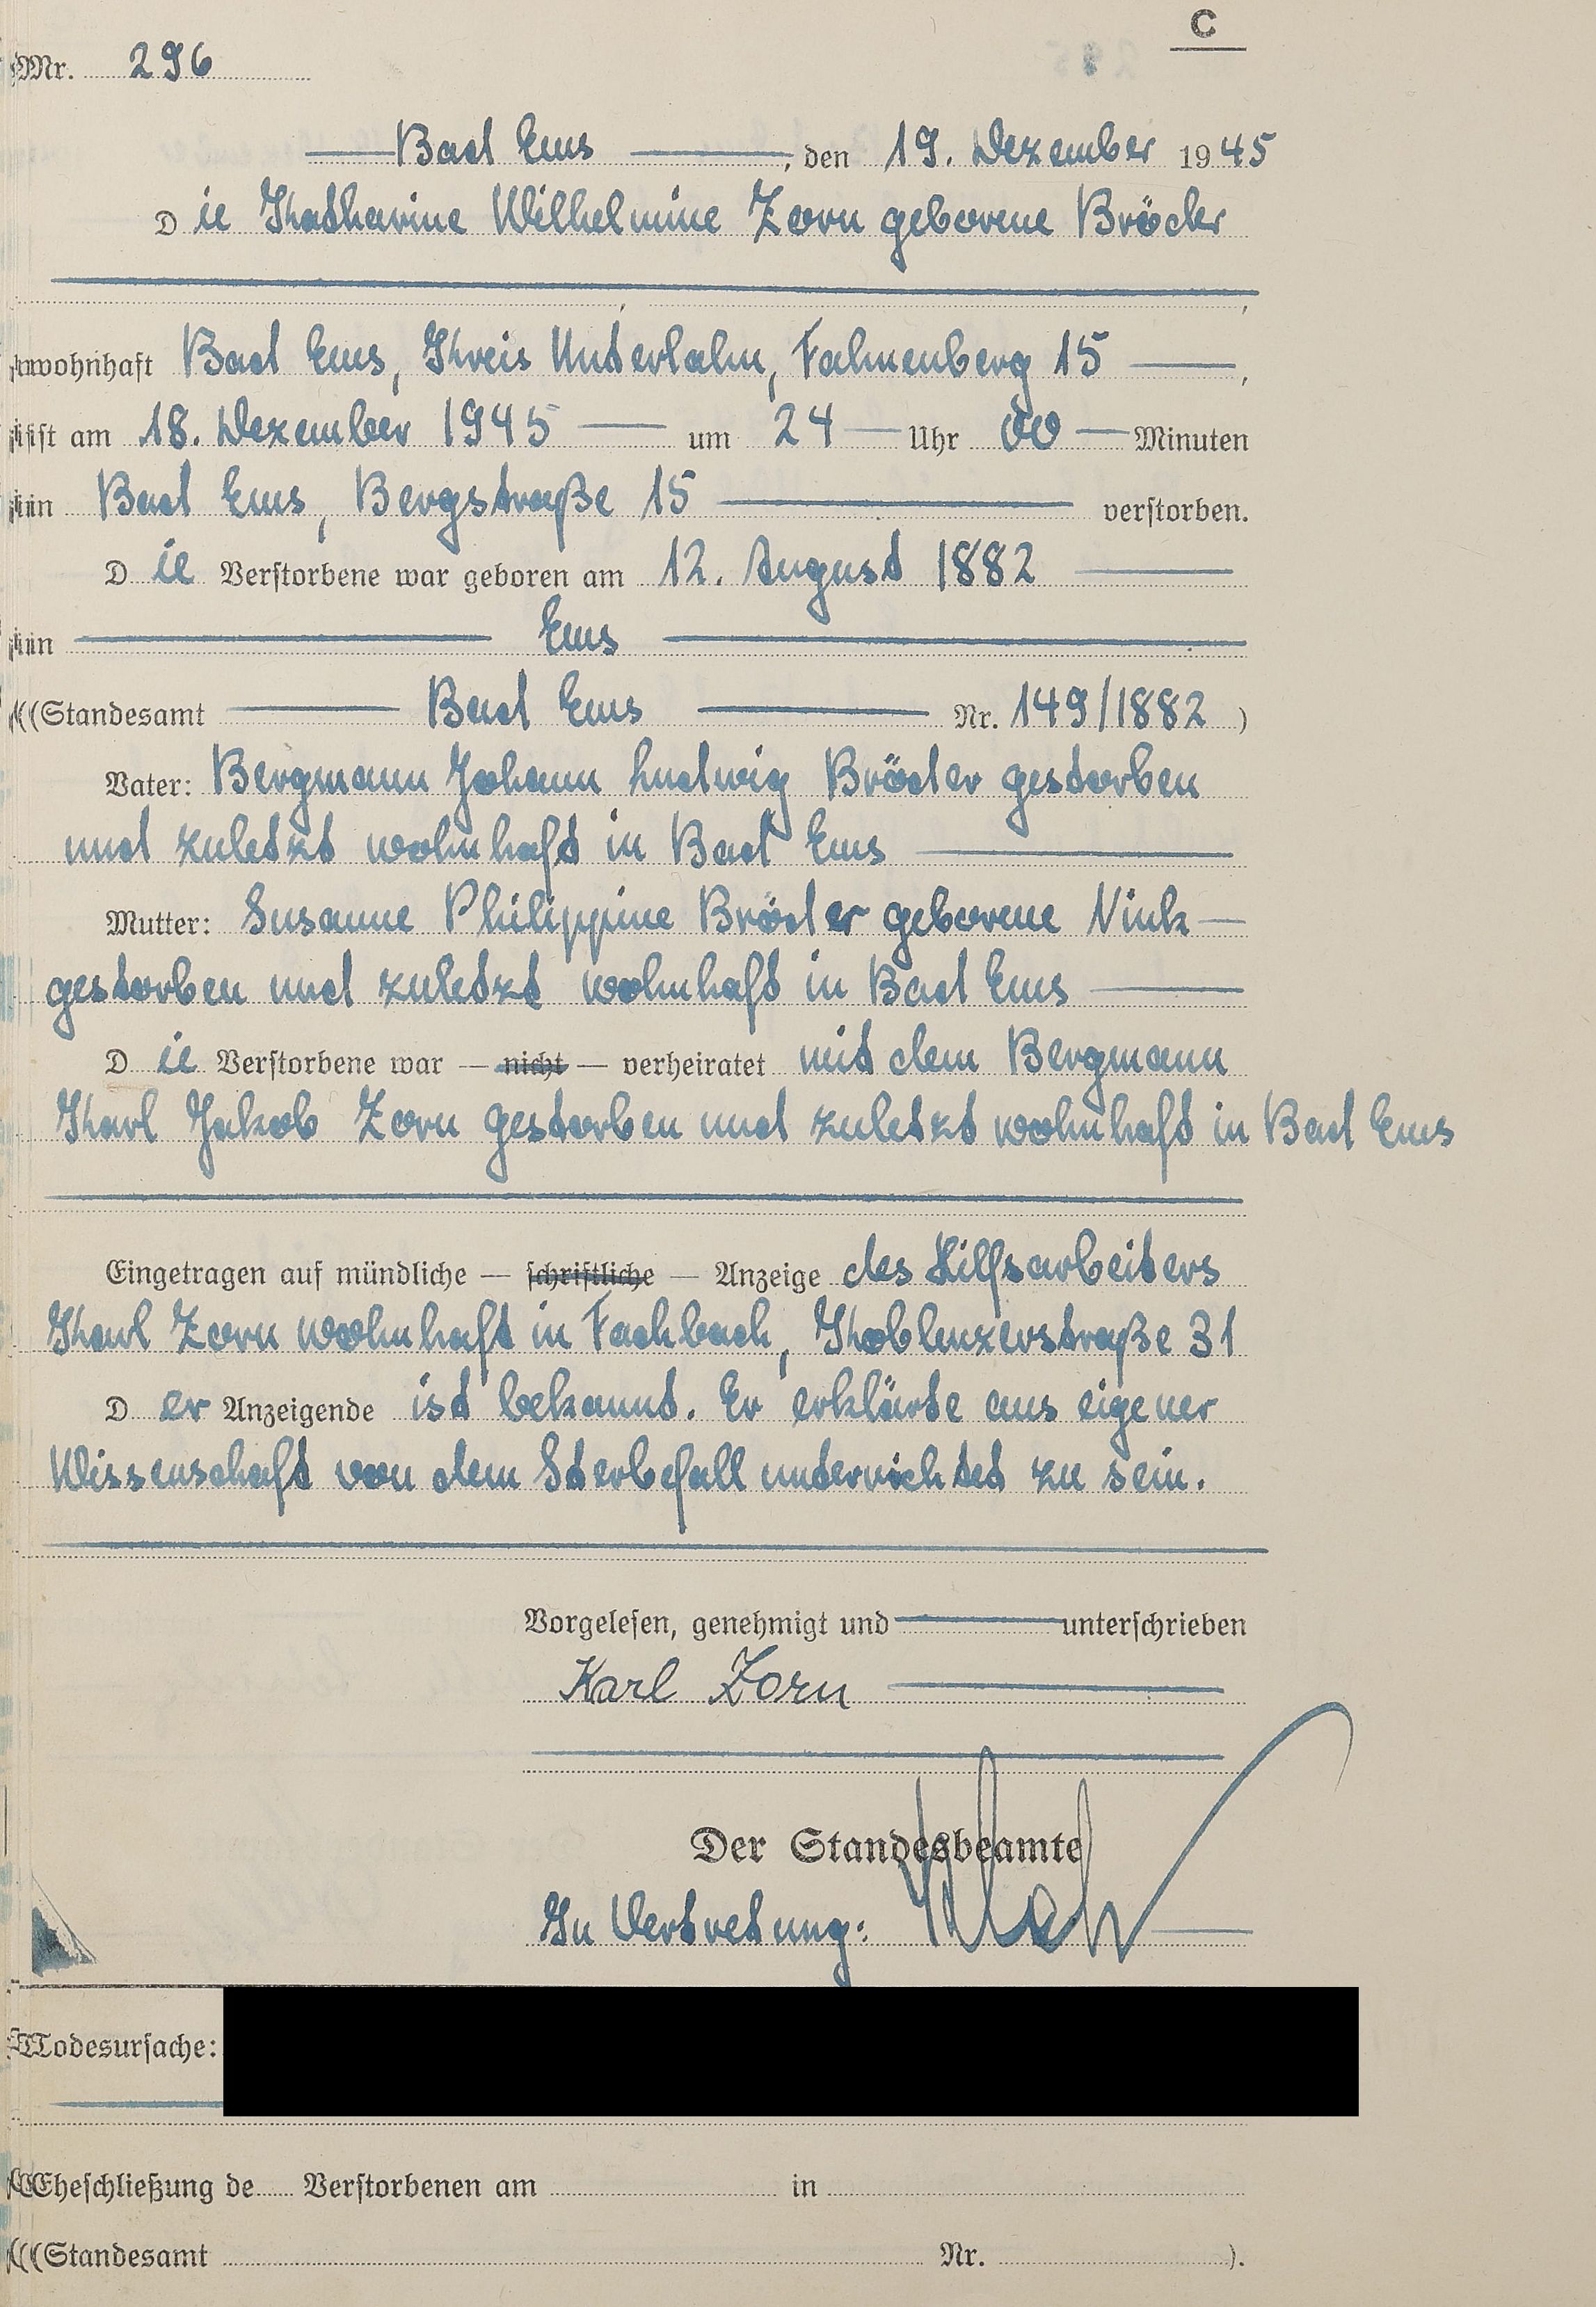 C
Nr. 296
Bad Ems, den 19. Dezember 1945
Die Katharine Wilhelmine Zorn geborene Bröder
wohnhaft Bad Ems, Kreis Unterlahn, Fahnenberg 15,
ist am 18. Dezember 1945 um 24 Uhr 00 Minuten
in Bad Ems, Bergstraße 15 verstorben.
Die Verstorbene war geboren am 12. August 1882
in Ems
(Standesamt Bad Ems Nr. 149/1882)
Vater: Bergmann Johann Ludwig Bröder gestorben
und zuletzt wohnhaft in Bad Ems
Mutter: Susanne Philippine Bröder geborene Vink
gestorben und zuletzt wohnhaft in Bad Ems
Die Verstorbene war — nicht — verheiratet mit dem Bergmann
Karl Jakob Zorn gestorben und zuletzt wohnhaft in Bad Ems
Eingetragen auf mündliche — schriftliche — Anzeige des Hilfsarbeiters
Karl Zorn wohnhaft in Fachbach, Koblenzerstraße 31
Der Anzeigende ist bekannt. Er erklärte aus eigener
Wissenschaft von dem Sterbefall unterrichtet zu sein.
Vorgelesen, genehmigt und unterschrieben
Karl Zorn
Der Standesbeamte
In Vertretung:
Todesursache:
Eheschließung de Verstorbenen am in
(Standesamt Nr. ).